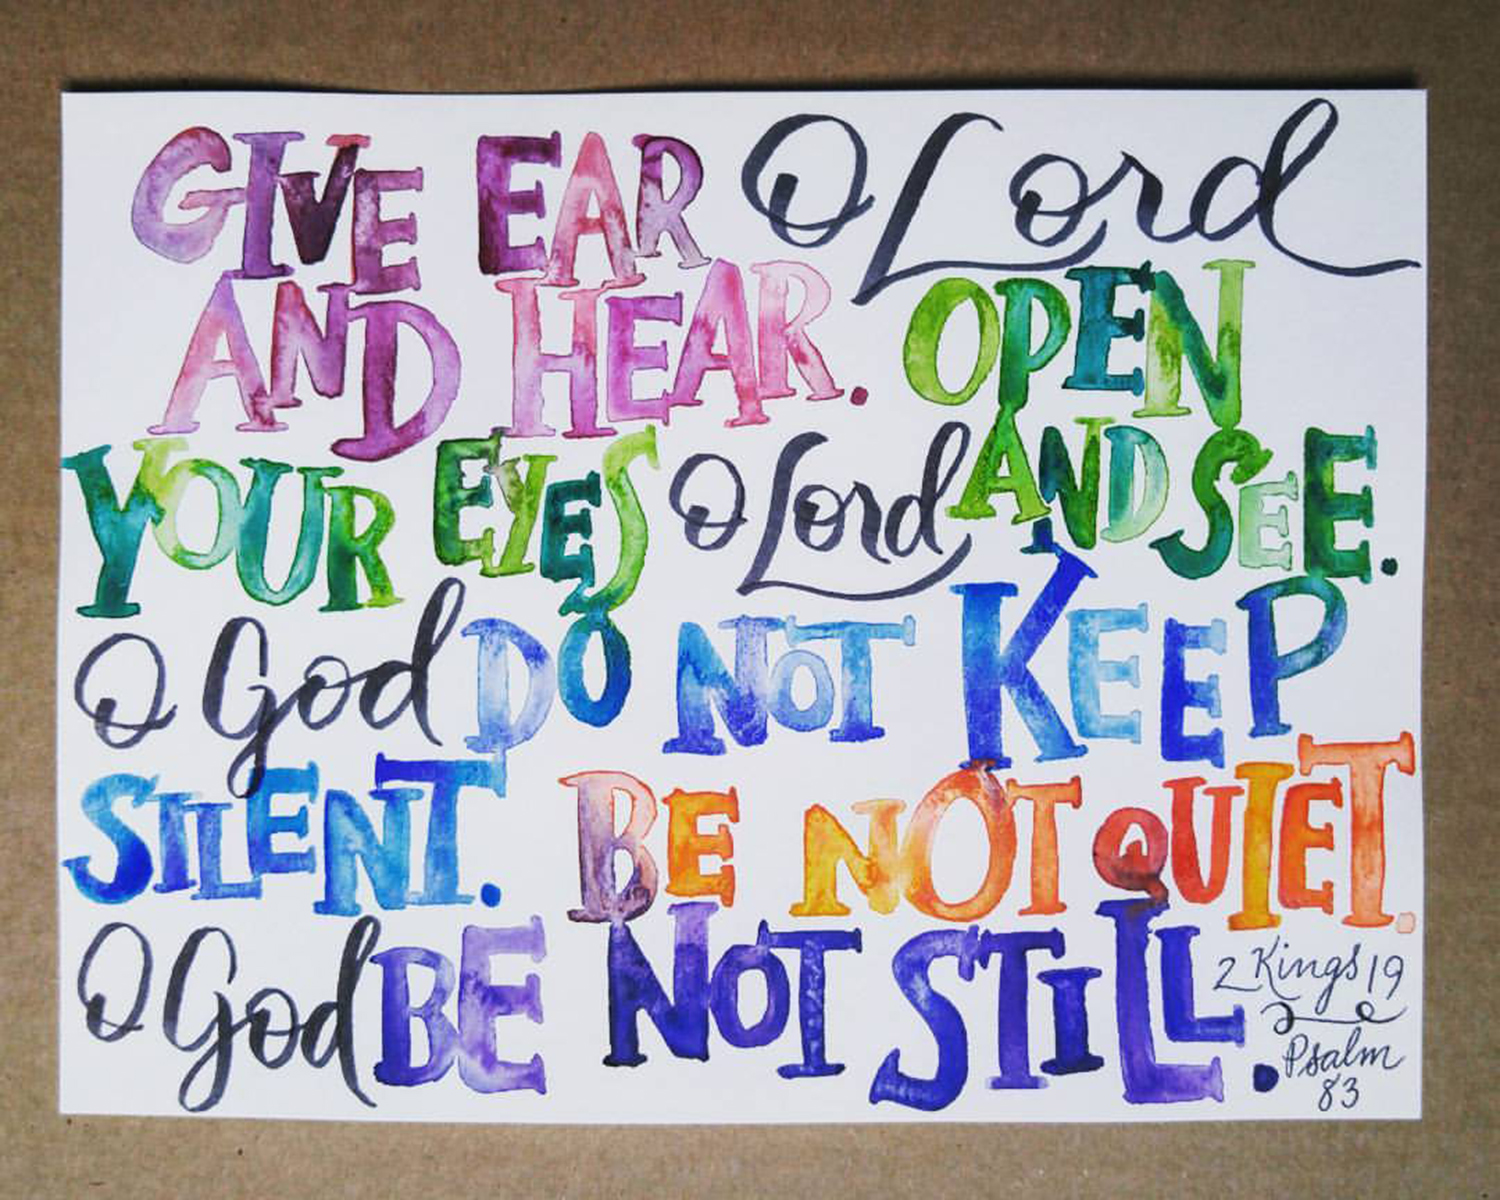 GIVE EAR O Lord
AND HEAR. OPEN
YOUR EYES O Lord AND SEE.
O God DO NOT KEEP
SILENT. BE NOT QUIET.
O God BE NOT STILL.
2 Kings 19
Psalm
83